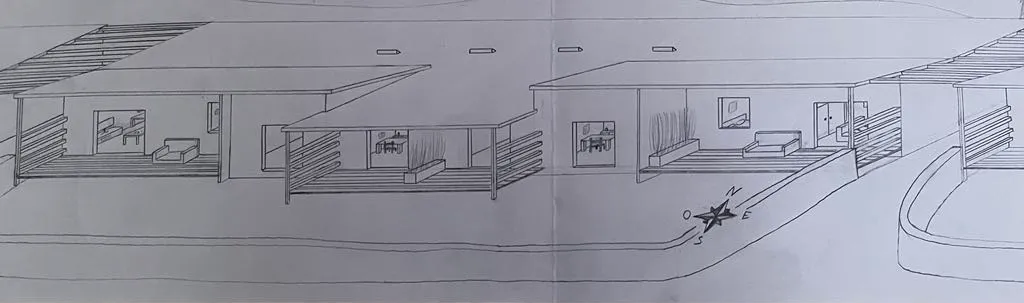 N
O E
S